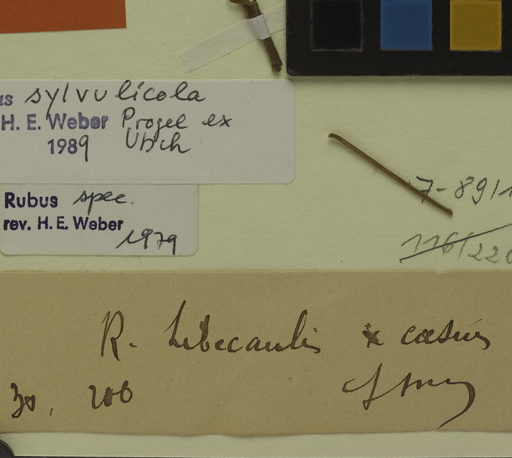 us sylvulicola
H. E. Weber Progel ex
1989 Ubch
Rubus spec.
rev. H. E. Weber
1979
7-89/1
116/226
R. hebecaulis x caesius
30, 206